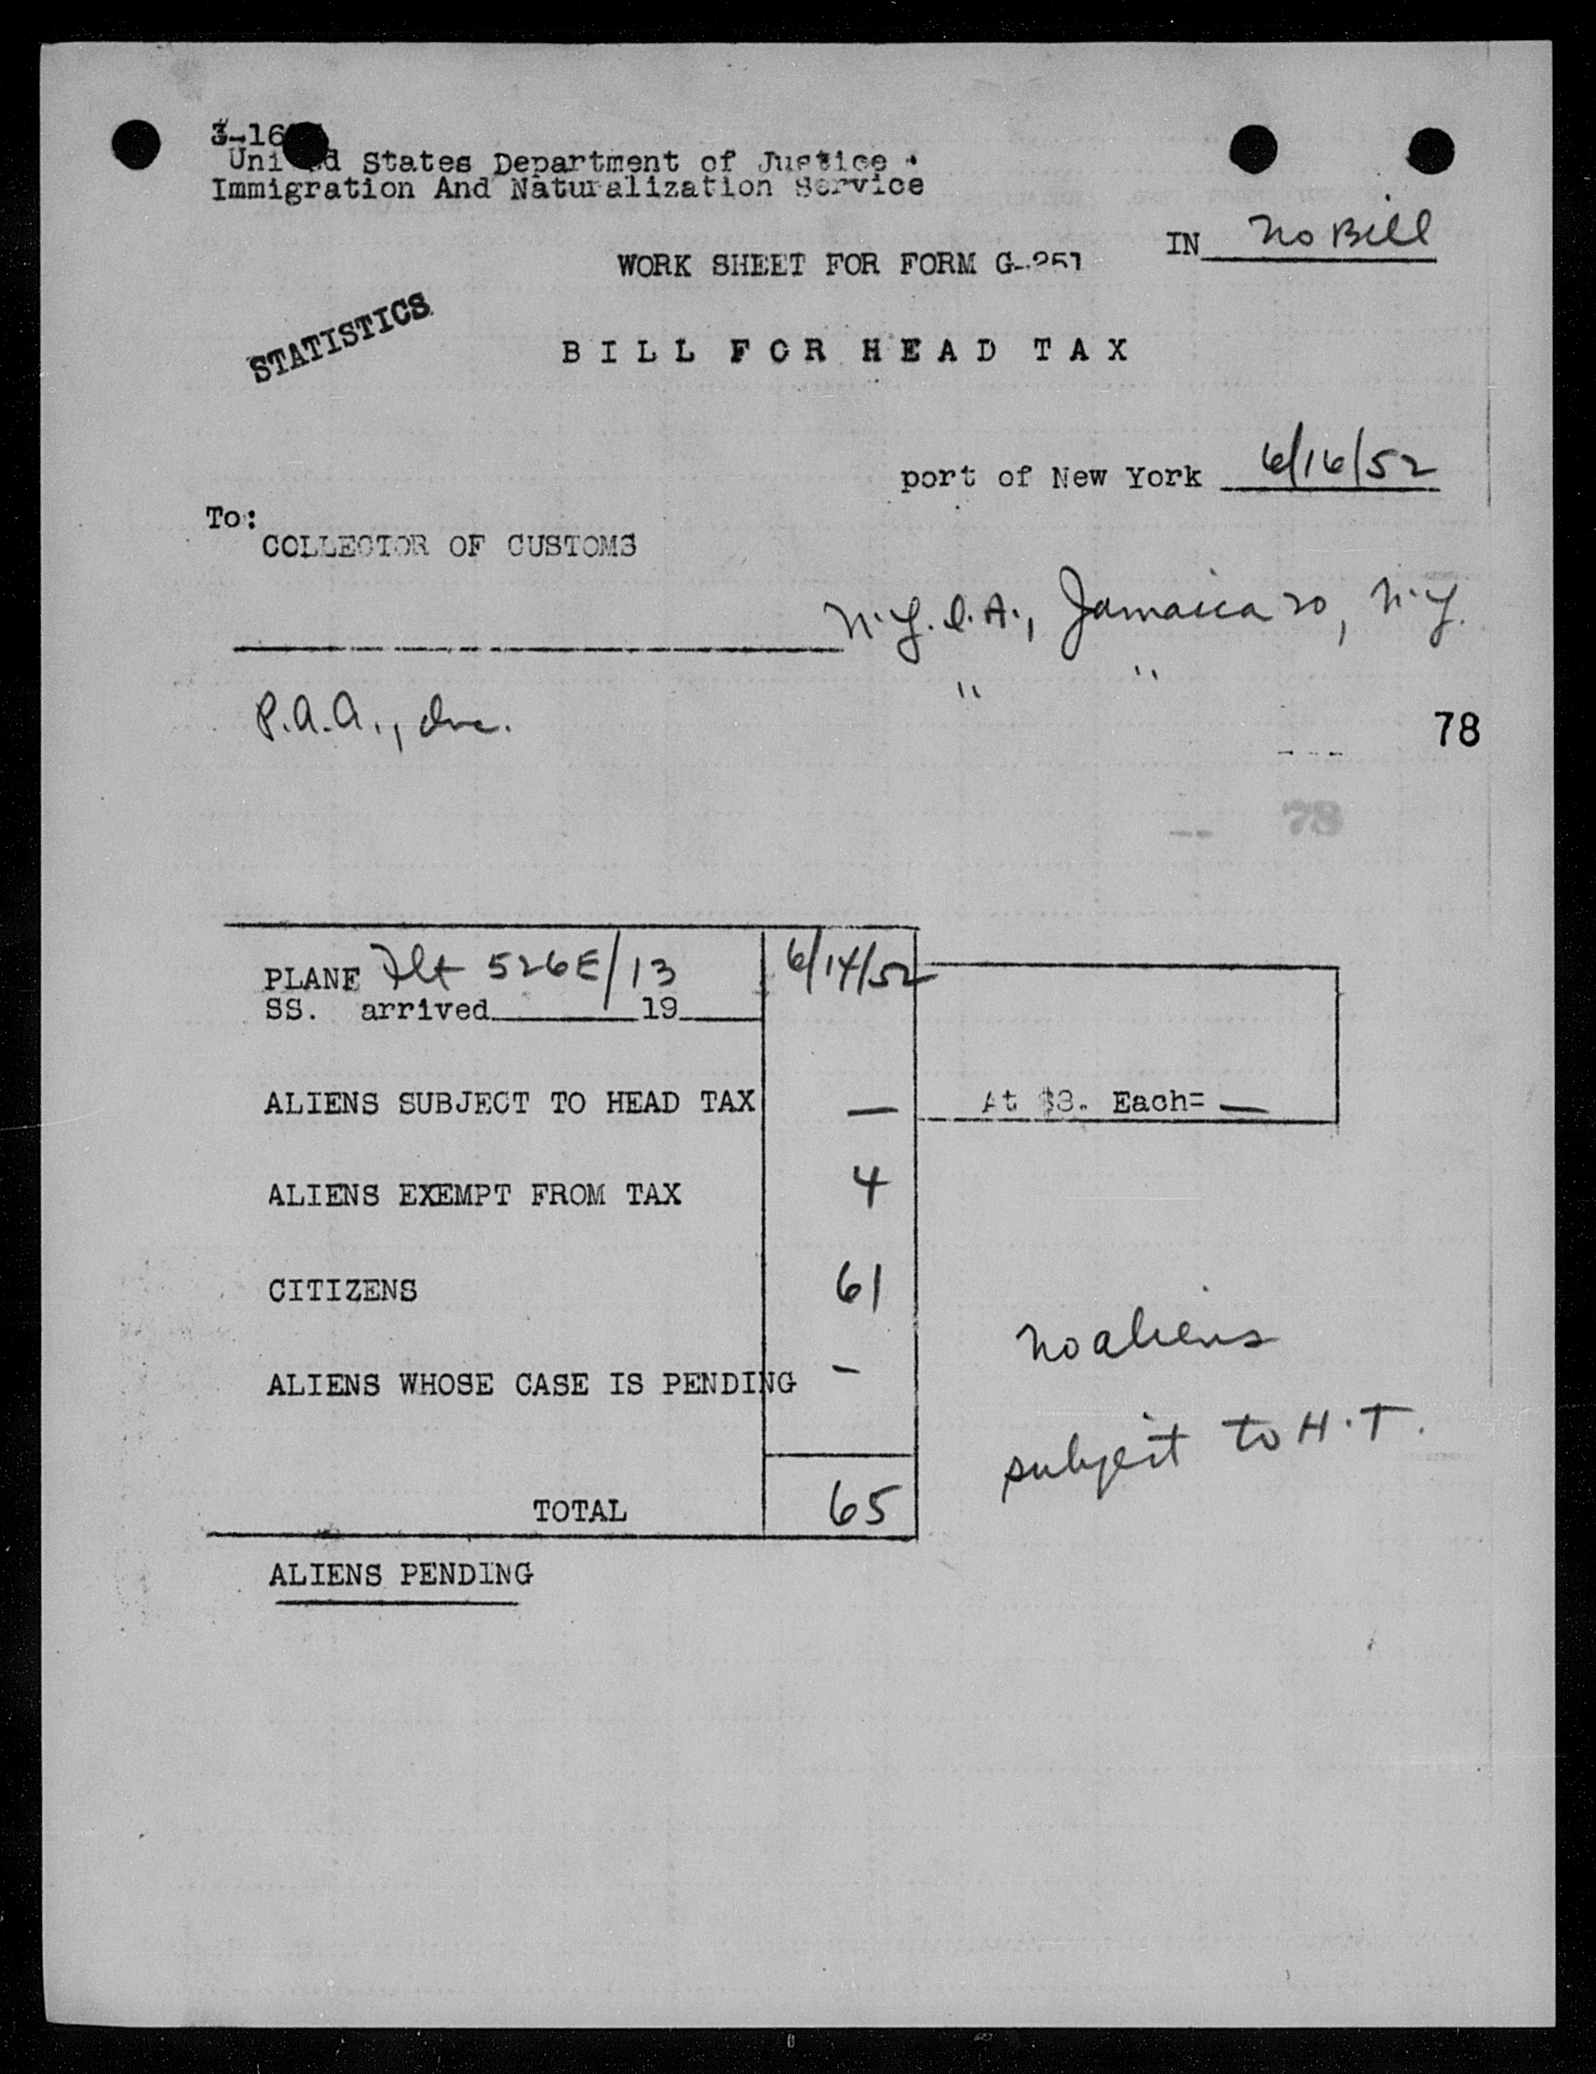 3-16
United States Department of Justice
Immigration And Naturalization Service
IN No Bill
WORK SHEET FOR FORM G-251
STATISTICS
BILL FOR HEAD TAX
port of New York 6/16/52
To:
COLLECTOR OF CUSTOMS
N.Y.I.A., Jamaica 20, N.Y.
P.A.A., Inc. " "
78
78
PLANE Flt 526E/13 6/14/52
SS. arrived 19
ALIENS SUBJECT TO HEAD TAX — At $8. Each= —
ALIENS EXEMPT FROM TAX 4
CITIZENS 61
No aliens
ALIENS WHOSE CASE IS PENDING -
subject to H.T.
TOTAL 65
ALIENS PENDING